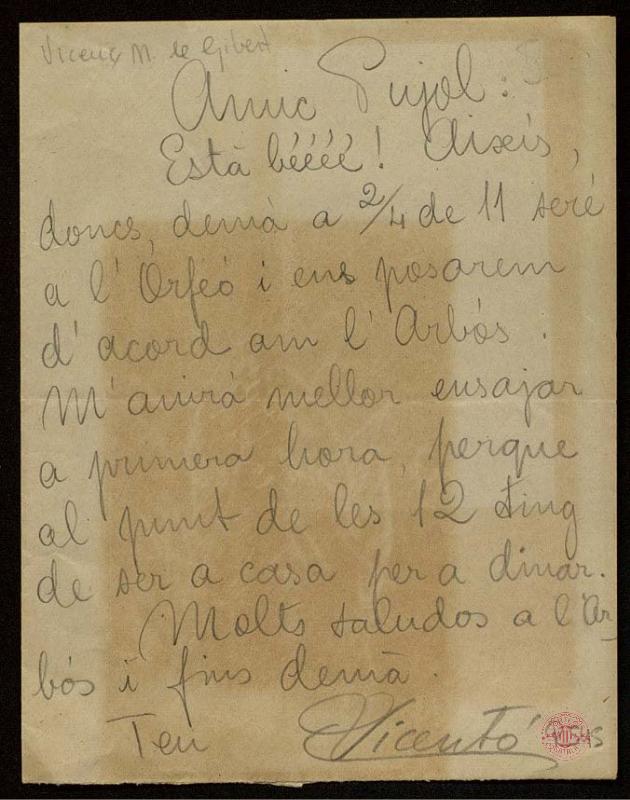 Vicenç M. de Gibert
Amic Pujol:
Està béééé! Aixís,
doncs, demà a 2/4 de 11 seré
a l' Orfeó i ens posarem
d' acord am l' Arbós.
M' anirà mellor ensajar
a primera hora, perque
al punt de les 12 ting
de ser a casa per a dinar.
Molts saludos a l' Ar_
bós i fins demà.
Teu Vicentó